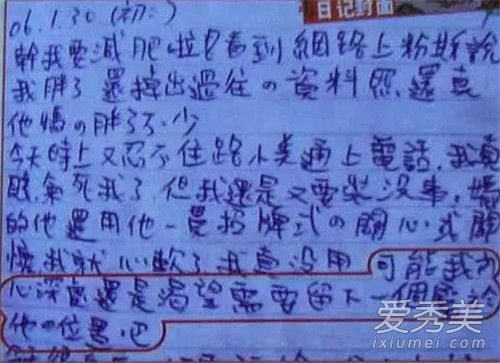 日记封面
06.1.30(初二)
幹我要減肥啦只看到網路上粉斯說
我胖了 還擠出過往の資料照 還真
他媽の胖了不少
今天時上又忍不住路小美通上電話,我真
敗氣死我了 但我還是又要裝没事,媽
的他還用他一貫招牌式の關心式關
懷我就心軟了我真没用 可能我內
心深處還是渴望需要留下一個
他の位置吧
爱秀美
ixiumei.com